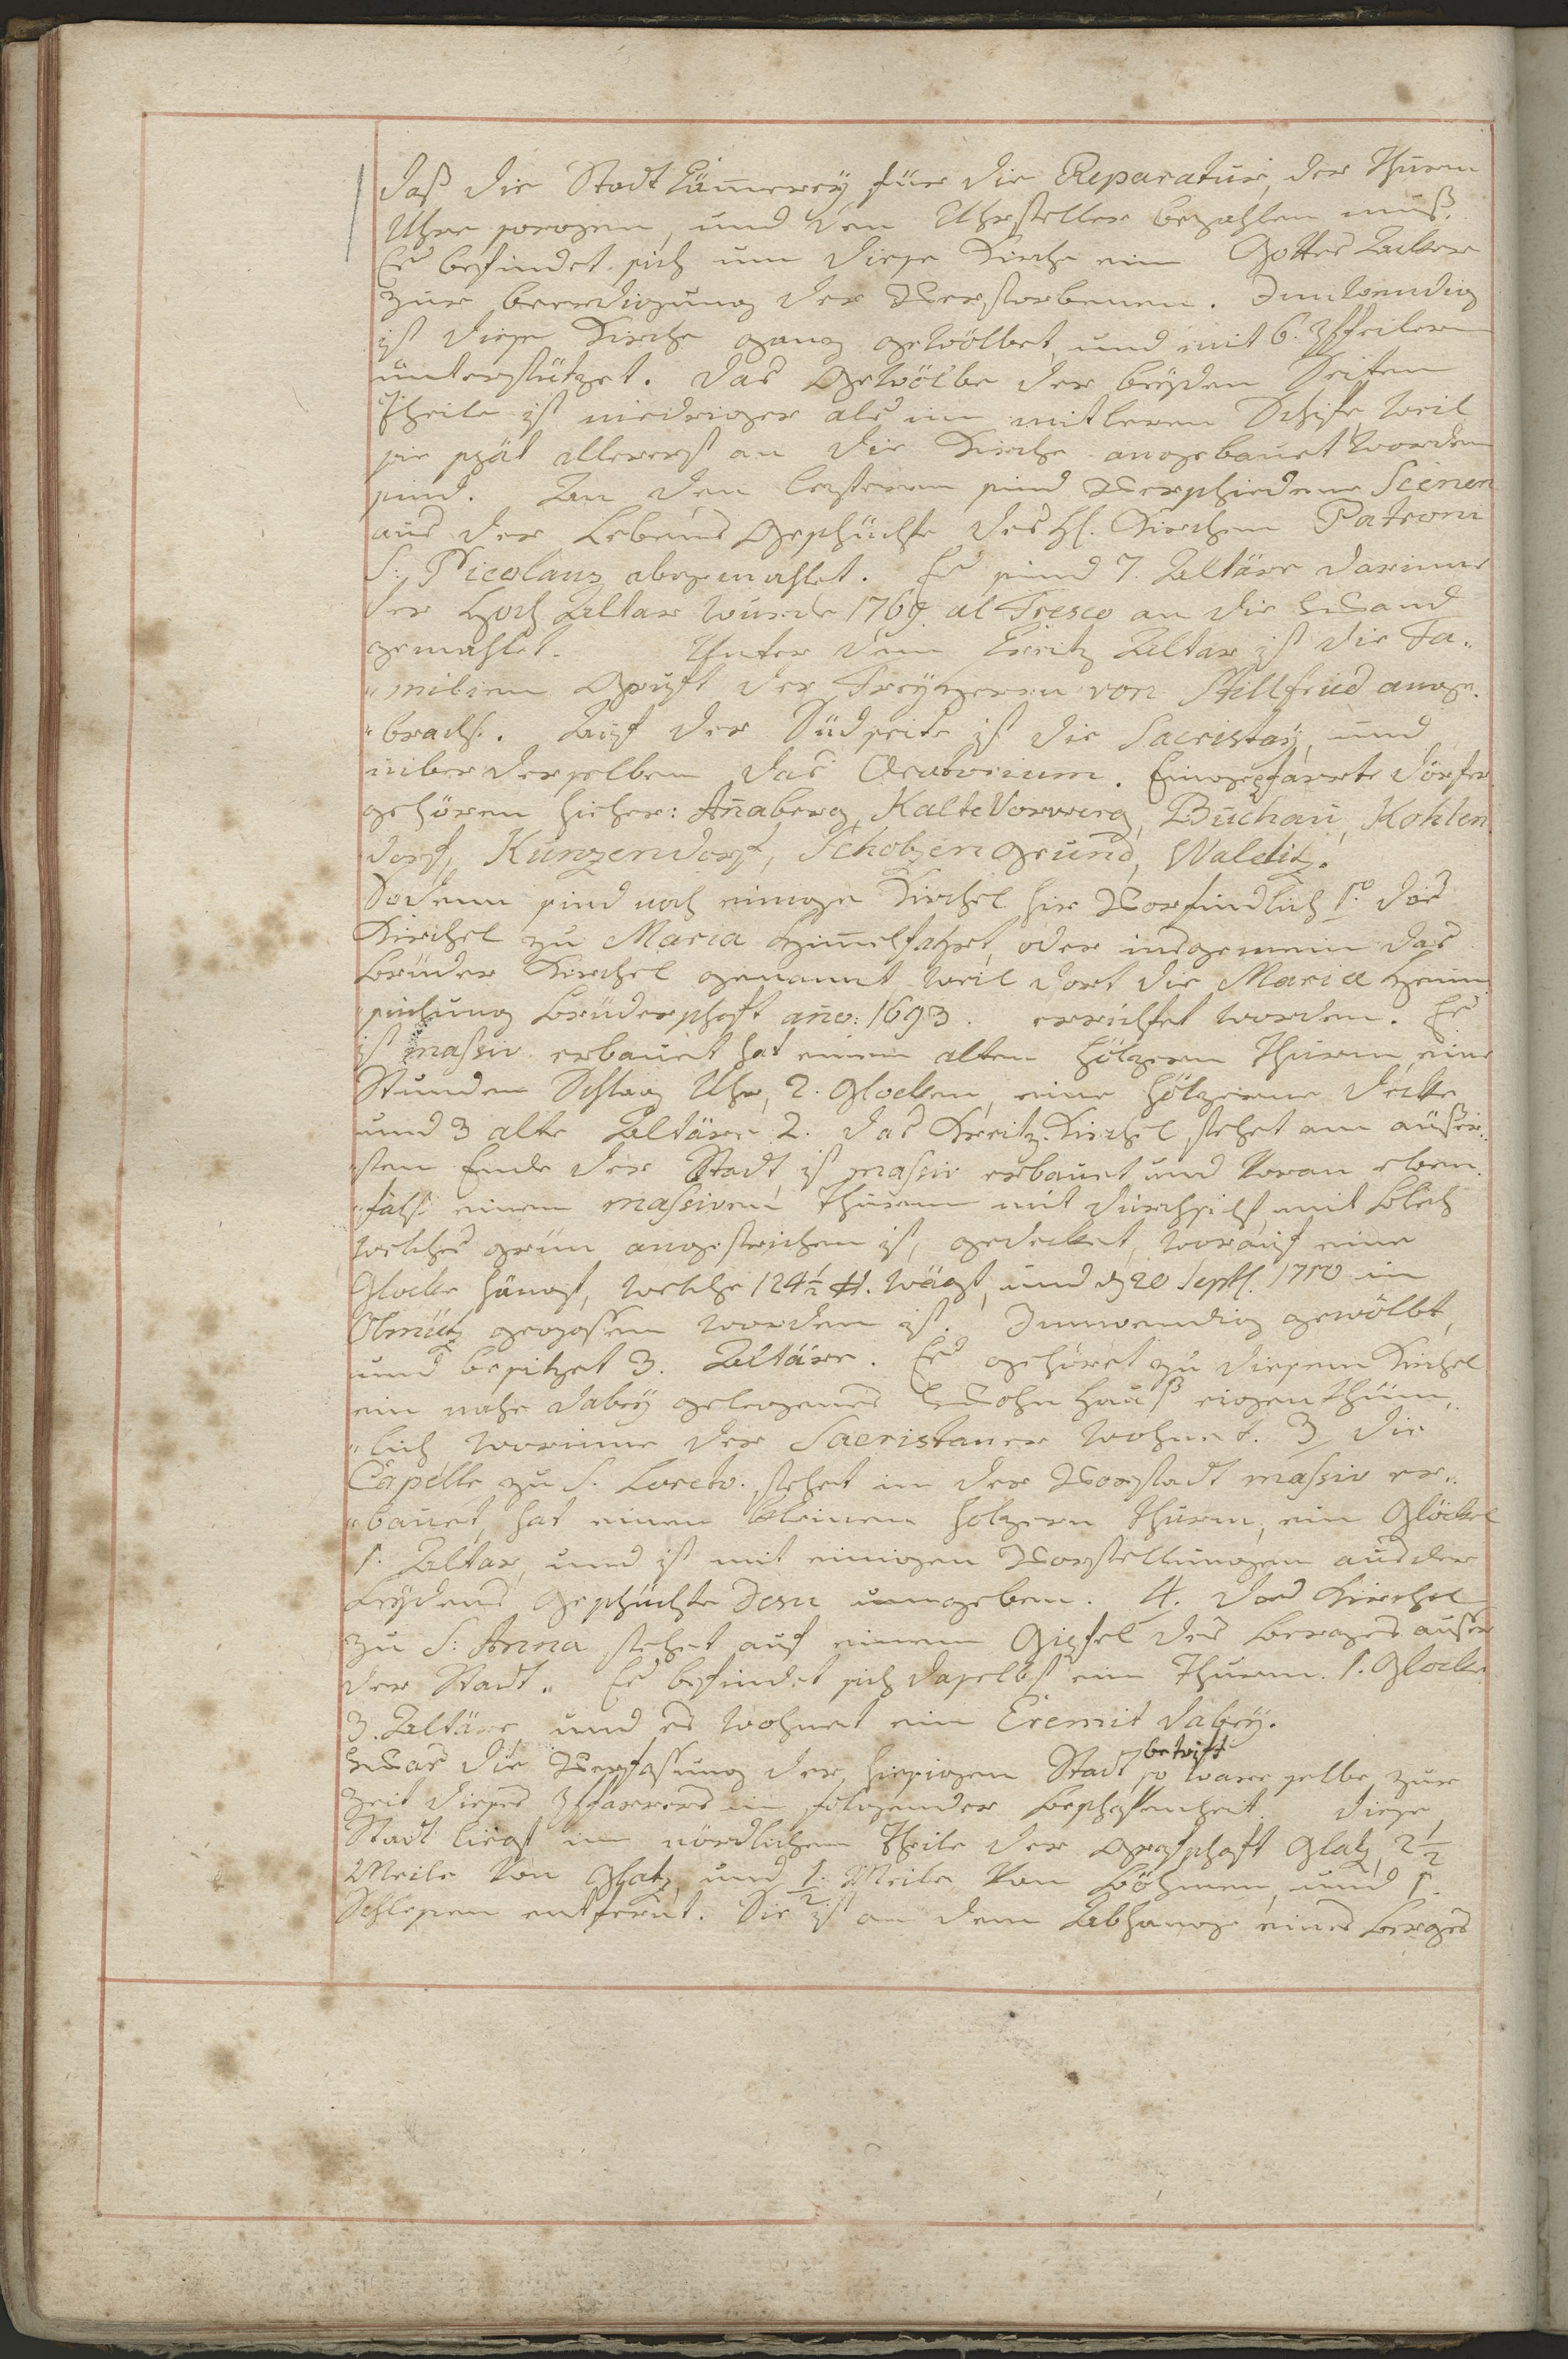 daß die Stadt Cämmereÿ für die Reparatur der Thurm
Uhre sorgen, und den Uhrsteller bezahlen muß.
Es befindet sich um diese Kirche ein Gottes Acker
zur beerdigung der Verstorbenen. Innwendig
ist diese Kirche ganz gewölbet, und mit 6. Pfeilern
unterstützet. Das Gewölbe der beÿden Seiten
Theile ist niedriger als im mitleren Schife, weil
sie spät allererst an die Kirche angebauet worden
sind. An den lezteren sind Verschiedene Scenen
aus der Lebens Geschichte des Hl. Kirchen Patrons
S. Nicolaus abgemahlet. Es sind 7. Altäre darinne
der Hoch Altar wurde 1769. al Fresco an die Wand
gemahlet. Unter dem Creitz Altar ist die Fa-
-milien Gruft der Freÿherrn von Stillfrud ange-
-bracht. Auf der Südseite ist die Sacristeÿ, und
über derselben das Oratorium. Eingepfarrte Dörfer
gehören hieher: Añaberg, Kalte Vorwerg, Buchau, Kohlen
dorf, Kunzendorf, Scholzengrund, Walditz.
Sodenn sind noch einige Kirchel hier Vorfindlich 1º das
Kirchel zu Maria Him̄elfahrt, oder insgemein das
Brüder Kirchel genannt weil dort die Mariæ Heim
suchung Brüderschaft año: 1693. errichtet worden. Es
ist massiv erbauet hat einen alten hölzern Thurm, eine
Stunden Schlag Uhr, 2. Glocken, eine hölzerne Decke
und 3 alte Altäre 2. Das Kreitz-Kirchel, stehet am äußer-
sten Ende der Stadt, ist massiv erbauet und Voran eben-
-fals einen massiven Thurm mit durchsicht, mit Blech
welches grün angestrichen ist, gedecket, worauf eine
Glocke hängt, welche 124½ ℔. wägt, und d 20 Septl. 1750 in
Olmütz gegossen worden ist. Innwendig gewölbt,
und besitzet 3. Altäre. Es gehöret zu diesem Kirchel
ein nahe dabeÿ gelegenes Wohn Hauß eigenthüm-
-lich worinne der Sacristaner wohnet. 3, die
Capelle zu S. Loreto. stehet in der Vorstadt massiv er-
-bauet, hat einen kleinen holzern Thurm, ein Glöckel
1. Altar, und ist mit einigen Vorstellungen aus der
Leÿdens Geschichte Jesu umgeben. 4. Das Kirchel
zu S: Anna stehet auf einem Gipfel des Berges ausser
der Stadt. Es befindet sich daselbst ein Thurm. 1. Glocke
3. Altäre und es wohnet ein Eremit dabeÿ.
Was die Verfassung der hiesigen Stadt betrift so ware selbe zur
Zeit dieses Pfarrers in folgender Beschafenheit. Diese
Stadt liegt im nördlichen Theile der Grafschaft Glatz, 2½
Meile von Glatz, und ½ Meile von Böhmen, und 1.
Schlesien entfernt. Sie ist an dem Abhange eines Berges